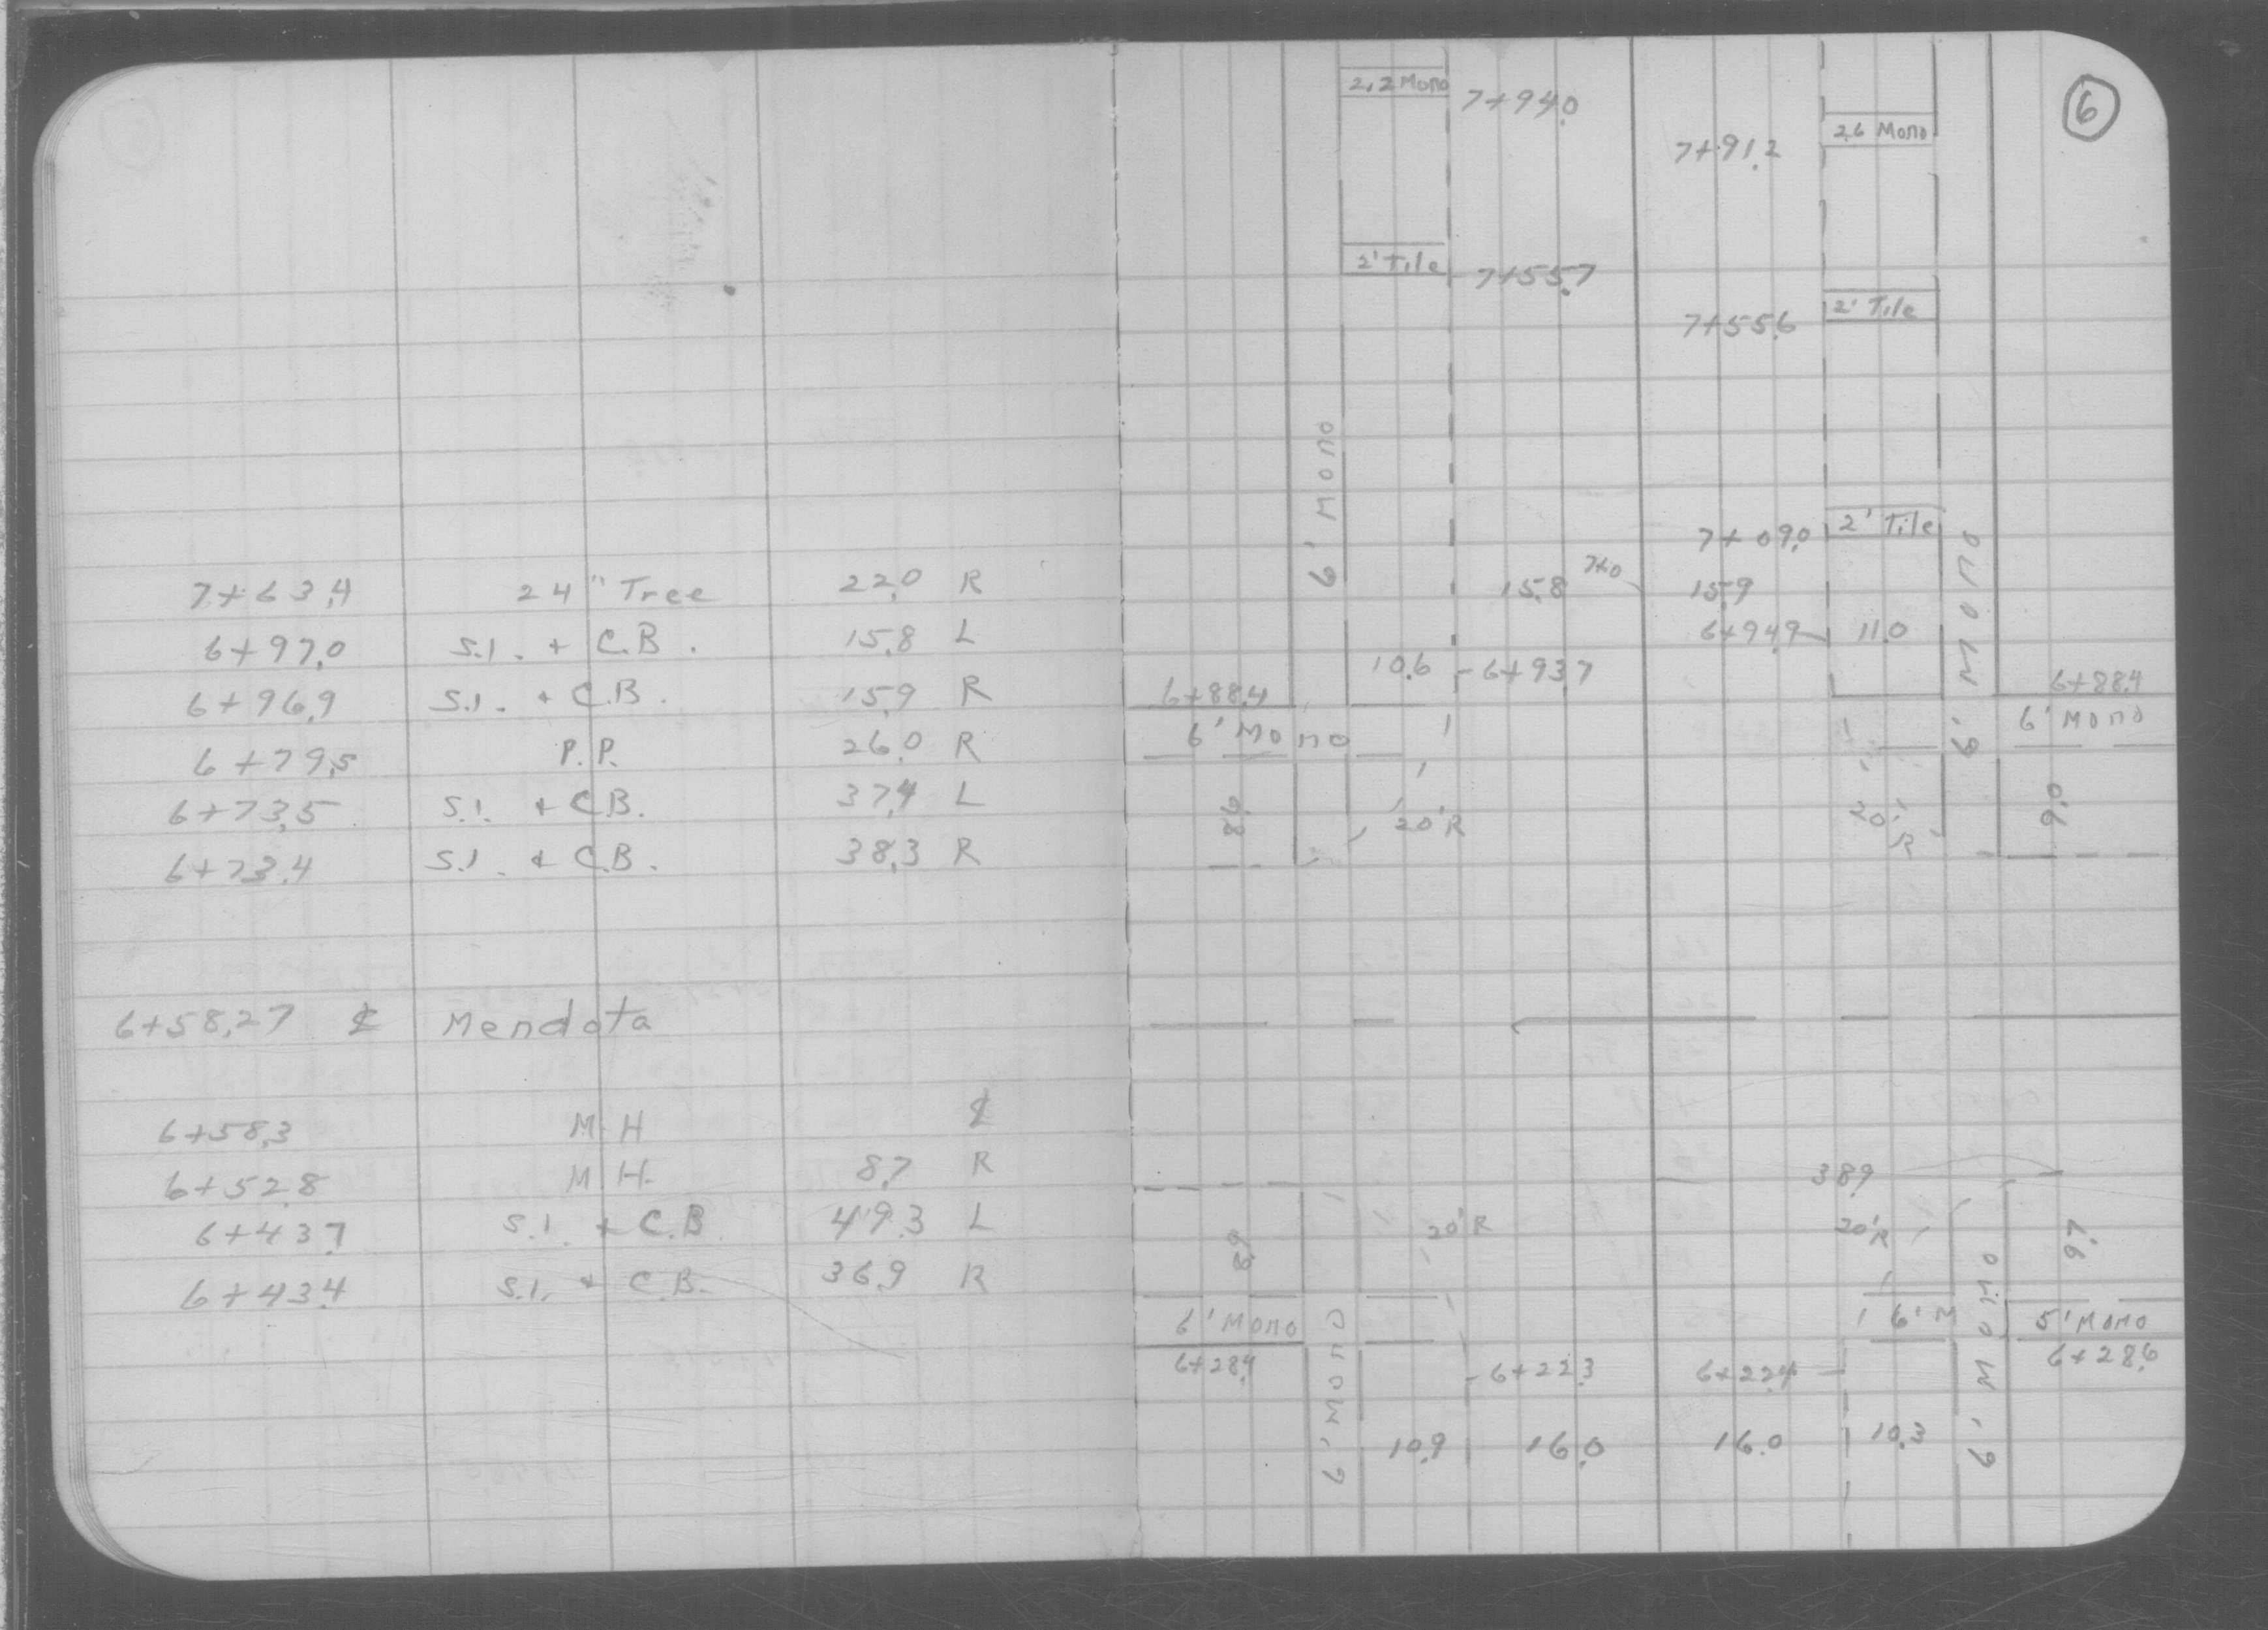 7+63.4 24" Tree 22.0 R
6+97.0 S.I. + C.B. 15.8 L
6+96.9 S.I. + C.B. 15.9 R
6+79.5 P.P. 26.0 R
6+73.5 S.I. + C.B. 37.4 L
6+73.4 S.I. + C.B. 38.3 R
6+58.27 ℄ Mendota
6+58.3 M.H ℄
6+52.8 M.H. 8.7 R
6+43.7 S.I. + C.B 49.3 L
6+43.4 S.I. + C.B. 36.9 R
6
2.2 Mono 7+94.0
7+91.2 2.6 Mono
2' Tile 7+55.7
7+55.6 2' Tile
6' Mono
7+09.0 2' Tile
15.8 7+0 15.9
6+94.9 11.0
10.6 6+93.7
6' Mono
6+88.4 6+88.4
6' Mono 6' Mono
9.8 20'R 20'R 9.0
38.9
9.3 20'R 20'R 9.7
6' Mono 6' M 5' Mono
6+28.4 6+22.3 6+22.4 6+28.6
6' Mono 6' Mono
10.9 16.0 16.0 10.3